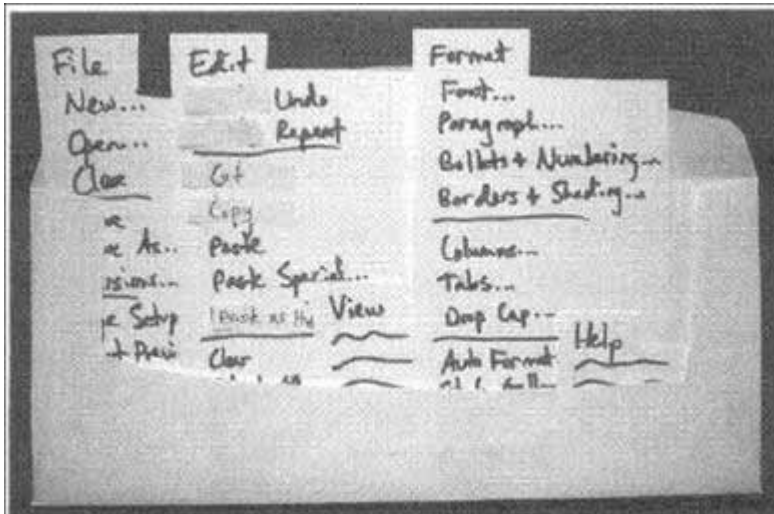 File
New...
Open...
Close
As..
Edit
Undo
Repeat
Cut
Copy
Paste
Paste Special...
Clear
View
Format
Font...
Paragraph...
Bullets + Numbering...
Borders + Shading...
Columns...
Tabs...
Drop Cap...
Auto Format
Help